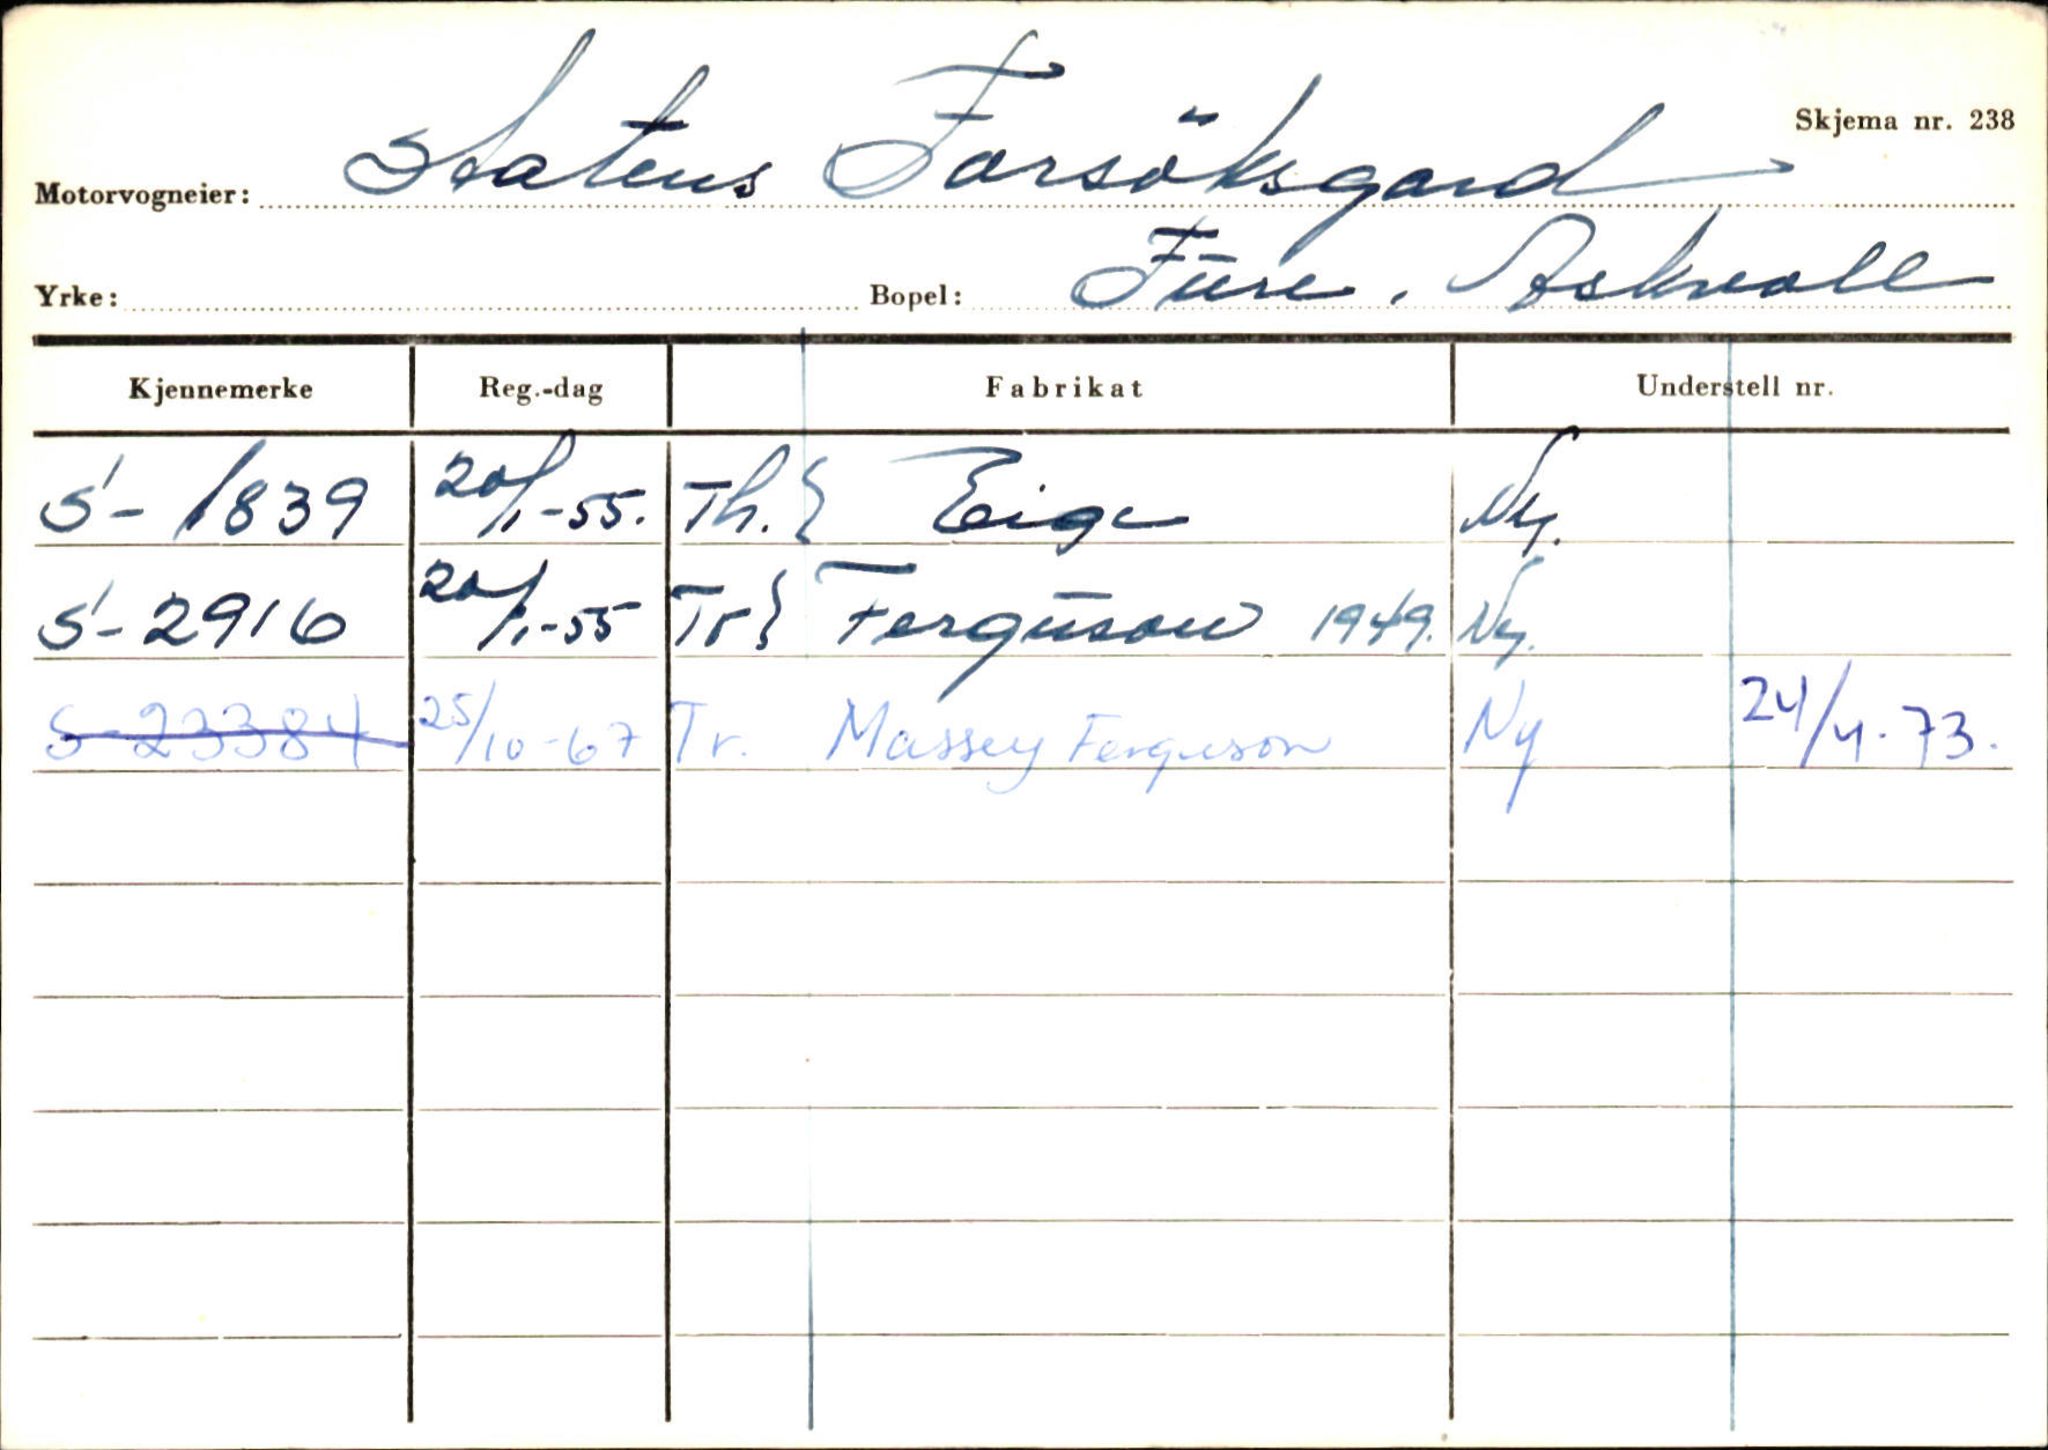 Skjema nr. 238
Motorvogneier: Statens Forsöksgard
Yrke: Bopel: Fure, Askvoll
Kjennemerke Reg.-dag Fabrikat Understell nr.
S-1839 20/1-55. Th. Eige Ny.
S-2916 20/1-55 Tr Ferguson 1949. Ny.
S-23384 25/10-67 Tr. Massey Ferguson Ny 24/4.73.